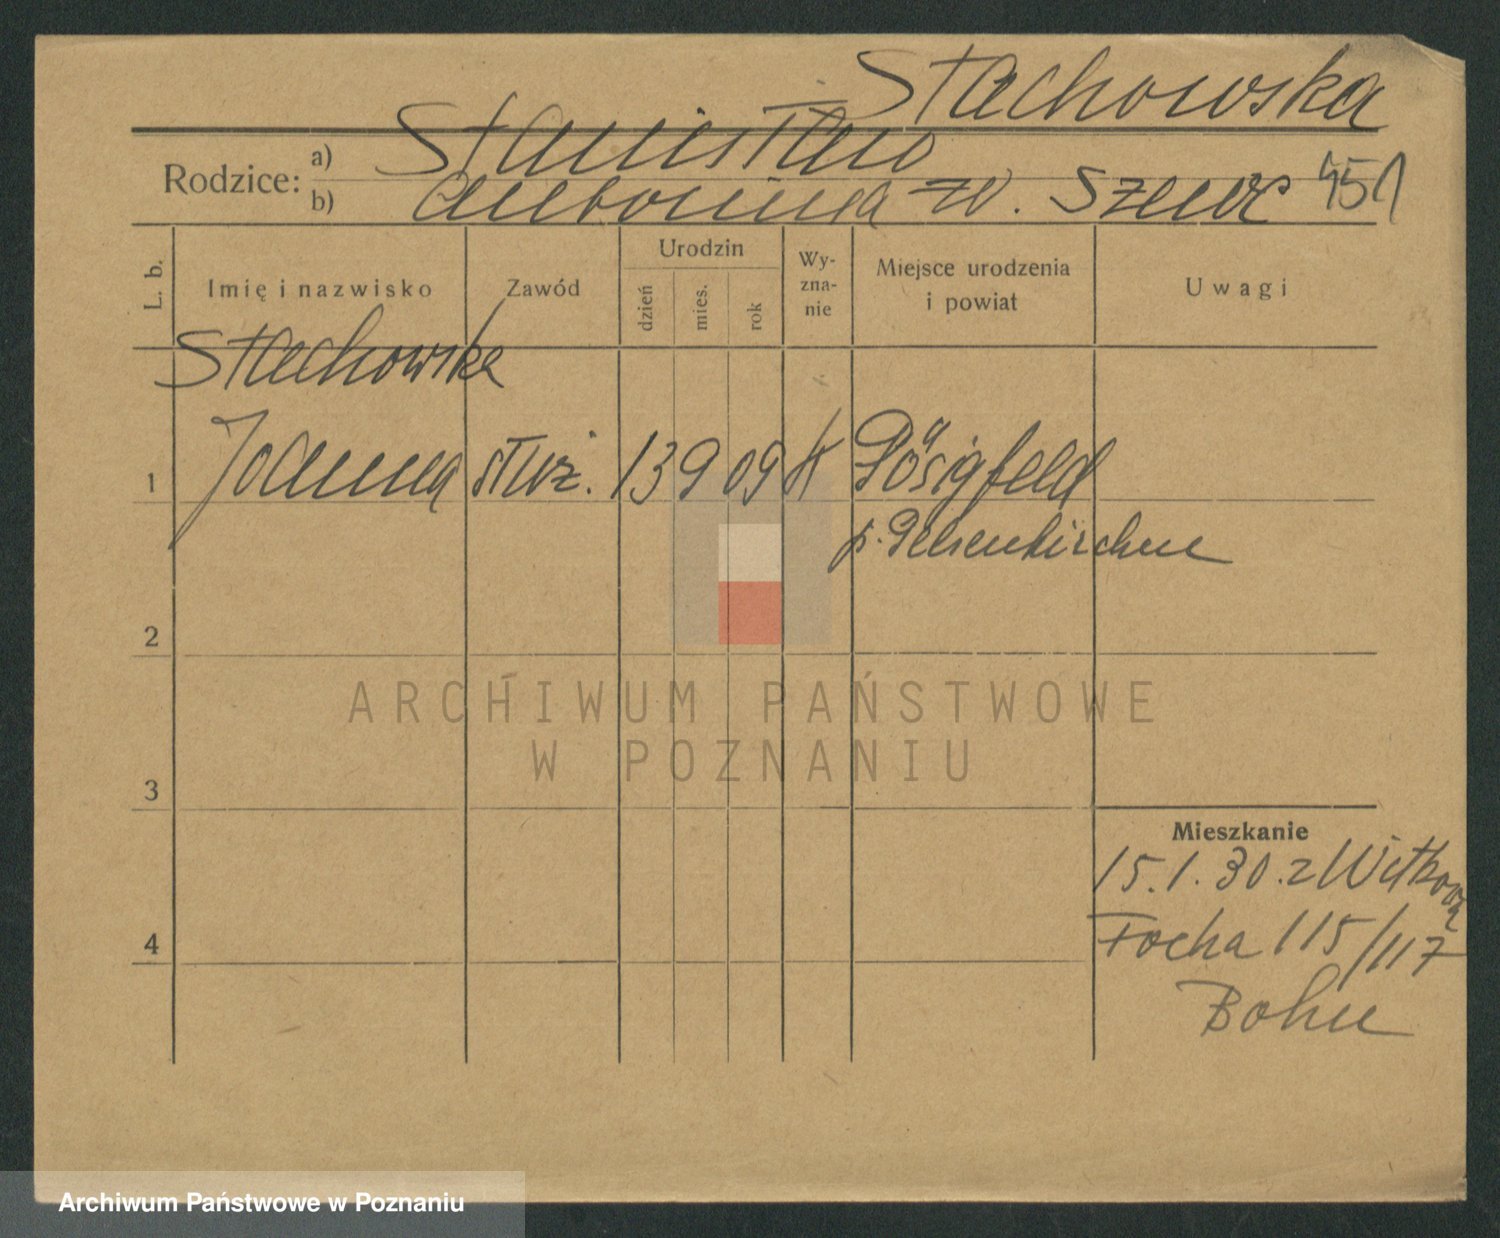 Stachowska
Rodzice: a) Stanisław
b) Antonina zd. Szewc 451
L. b. Imię i nazwisko Zawód Urodzin dzień mies. rok Wy-zna-nie Miejsce urodzenia i powiat Uwagi
Stachowska
1 Joanna służ. 13 9 09 k Pösigfeld
p. Gelsenkirchen
2
ARCHIWUM PAŃSTWOWE
W POZNANIU
3
Mieszkanie
15.1.30. z Witkowa
4 Focha 115/117
Bohn
Archiwum Państwowe w Poznaniu